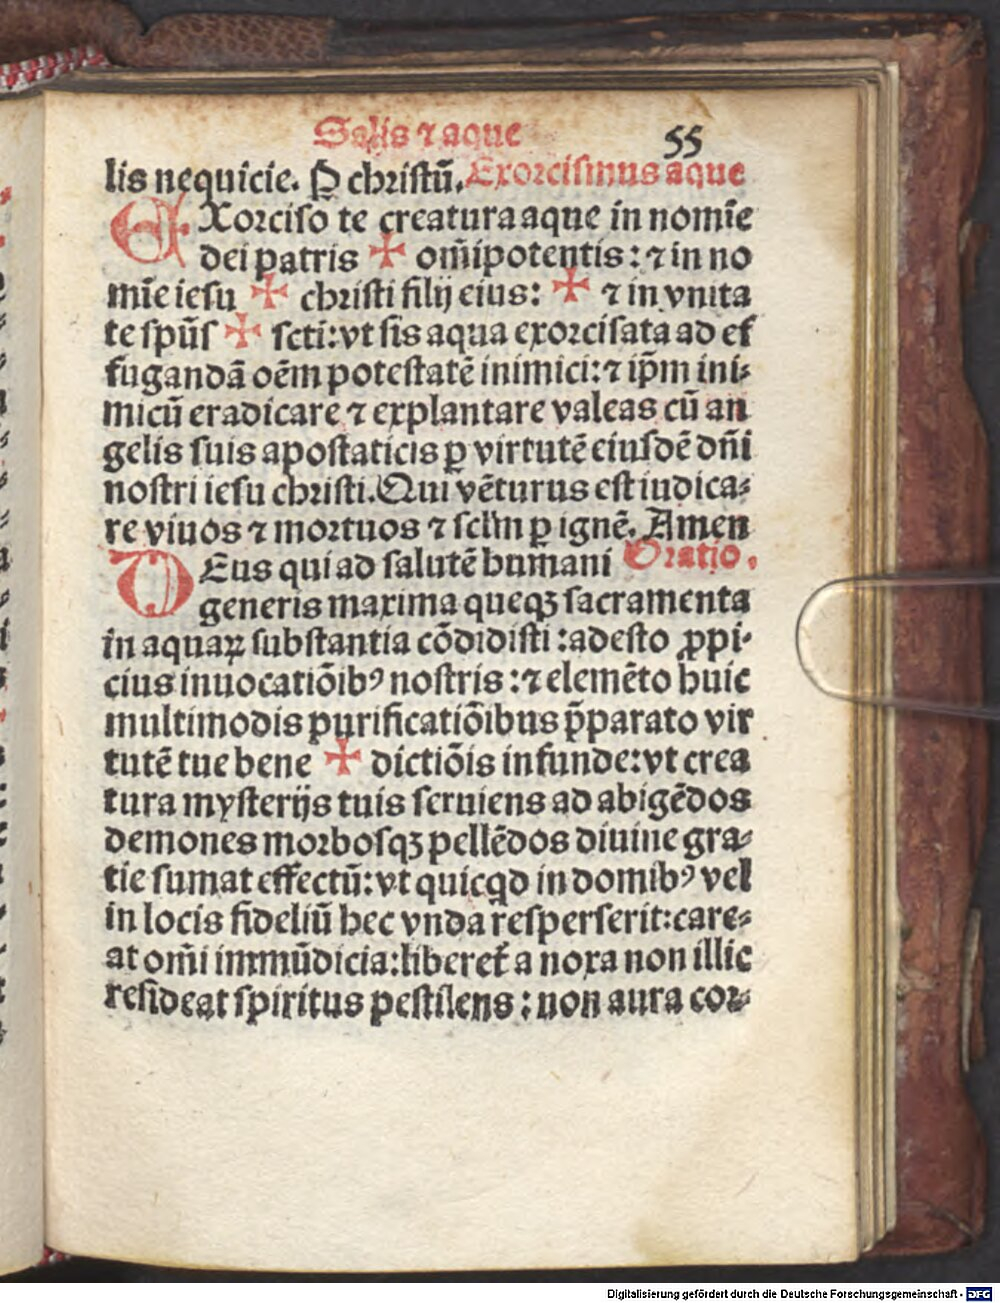 Salis ⁊ aque 55
lis nequicie. P̲ christū. Exorcismus aque
EXorciso te creatura aque in nomīe
dei patris ✠ om̄ipotentis: ⁊ in no
mīe iesu ✠ christi filij eius: ✠ ⁊ in vnita
te spūs ✠ scti: vt sis aqua exorcisata ad ef
fugandā oēm potestatē inimici: ⁊ ip̄m ini-
micū eradicare ⁊ explantare valeas cū an
gelis suis apostaticis ꝑ virtutē eiusdē dn̄i
nostri iesu christi. Qui vēturus est iudica-
re viuos ⁊ mortuos ⁊ sclm̄ ꝑ ignē. Amen
DEus qui ad salutē humani Oratio.
generis maxima queqꝫ sacramenta
in aquaꝝ substantia cōdidisti: adesto ꝓpi-
cius inuocatiōibꝰ nostris: ⁊ elemēto huic
multimodis purificatiōibus p̄parato vir
tutē tue bene ✠ dictiōis infunde: vt crea
tura mysterijs tuis seruiens ad abigēdos
demones morbosqꝫ pellēdos diuine gra-
tie sumat effectū: vt quicqd in domibꝰ vel
in locis fideliū hec vnda resperserit: care-
at om̄i immūdicia: liberet̄ a noxa non illic
resideat spiritus pestilens: non aura cor-
Digitalisierung gefördert durch die Deutsche Forschungsgemeinschaft - DFG